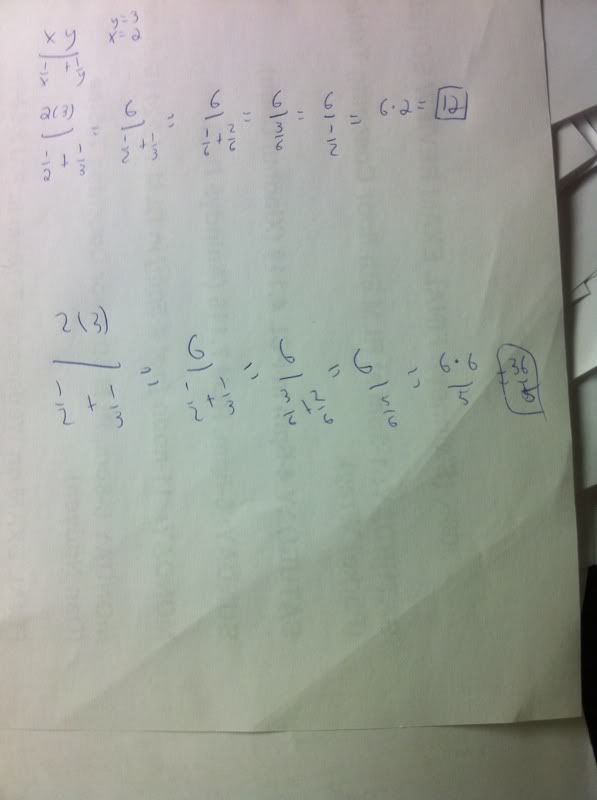 xy / (1/x + 1/y) y=3 x=2
2(3) / (1/2 + 1/3) = 6 / (1/2 + 1/3) = 6 / (1/6 + 2/6) = 6 / (3/6) = 6 / (1/2) = 6·2 = 12
2(3) / (1/2 + 1/3) = 6 / (1/2 + 1/3) = 6 / (3/6 + 2/6) = 6 / (5/6) = 6·6 / 5 = 36/5